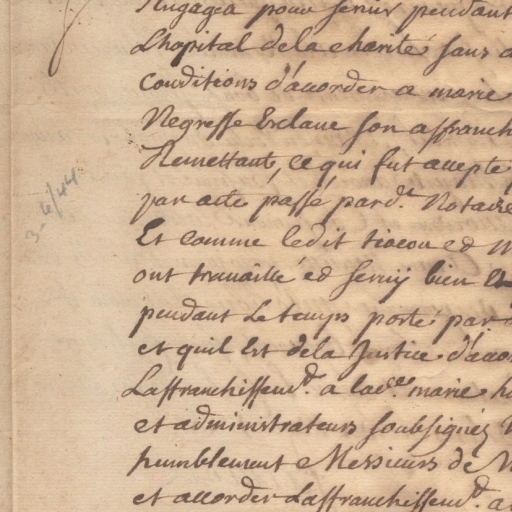 Engagea pour servir pendant
Lhopital de la charité sans a
Conditions d'accorder a marie
Negresse Esclave son affranch
Remettant, ce qui fut accepté
par acte passé pard.t Notaire
Et comme ledit tiocou ed M
ont travaillé ed servij bien Et
pendant Le temps porté par
et quil Est dela Justice d'acco
Laffranchissemt. a lade. marie
et administrateurs soubsignez
humblement Messieurs de
et accorder Laffranchissemt. a
3-6/44